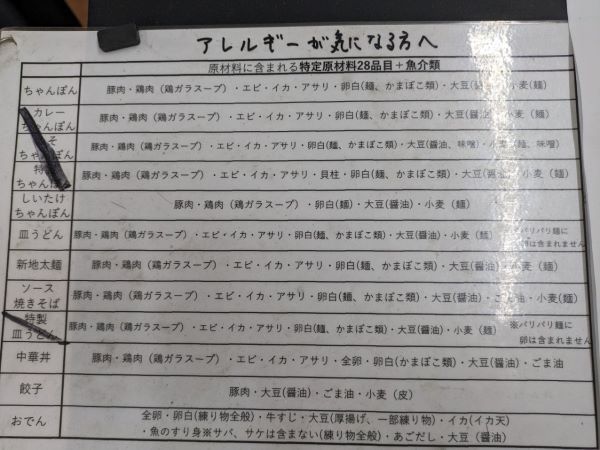 アレルギーが気になる方へ
原材料に含まれる特定原材料28品目＋魚介類
ちゃんぽん 豚肉・鶏肉（鶏ガラスープ）・エビ・イカ・アサリ・卵白(麺、かまぼこ類)・大豆(醤油)・小麦（麺）
カレー
ちゃんぽん 豚肉・鶏肉（鶏ガラスープ）・エビ・イカ・アサリ・卵白(麺、かまぼこ類)・大豆(醤油)・小麦（麺）
そ
ちゃんぽん 豚肉・鶏肉（鶏ガラスープ）・エビ・イカ・アサリ・卵白(麺、かまぼこ類)・大豆(醤油、味噌)・小麦（麺、味噌）
特
ちゃんぽん 豚肉・鶏肉（鶏ガラスープ）・エビ・イカ・アサリ・貝柱・卵白(麺、かまぼこ類)・大豆(醤油)・小麦（麺）
しいたけ
ちゃんぽん 豚肉・鶏肉（鶏ガラスープ）・卵白(麺)・大豆(醤油)・小麦（麺）
皿うどん 豚肉・鶏肉（鶏ガラスープ）・エビ・イカ・アサリ・卵白(麺、かまぼこ類)・大豆(醤油)・小麦（麺） ※パリパリ麺に
卵は含まれません
新地太麺 豚肉・鶏肉（鶏ガラスープ）・エビ・イカ・アサリ・卵白(麺、かまぼこ類)・大豆(醤油)・小麦（麺）
ソース
焼きそば 豚肉・鶏肉（鶏ガラスープ）・エビ・イカ・アサリ・卵白(麺、かまぼこ類)・大豆(醤油)・ごま油・小麦(麺)
特製
皿うどん 豚肉・鶏肉（鶏ガラスープ）・エビ・イカ・アサリ・卵白(麺、かまぼこ類)・大豆(醤油)・小麦（麺） ※パリパリ麺に
卵は含まれません
中華丼 豚肉・鶏肉（鶏ガラスープ）・エビ・イカ・アサリ・全卵・卵白(かまぼこ類)・大豆(醤油)・ごま油
餃子 豚肉・大豆(醤油)・ごま油・小麦（皮）
おでん 全卵・卵白(練り物全般)・牛すじ・大豆(厚揚げ、一部練り物)・イカ(イカ天)
・魚のすり身※サバ、サケは含まない(練り物全般)・あごだし・大豆（醤油）